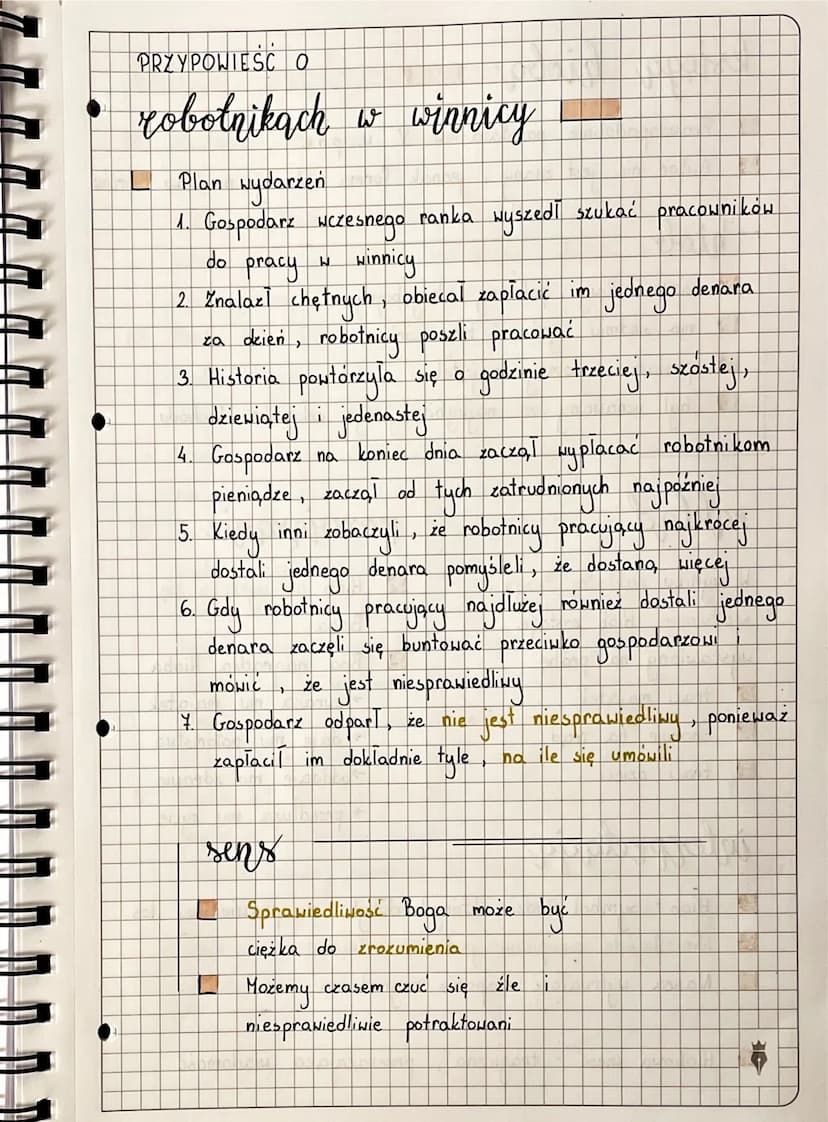 PRZYPOWIEŚĆ O
robotnikach w winnicy
Plan wydarzeń
1. Gospodarz wczesnego ranka wyszedł szukać pracowników
do pracy w winnicy
2. Znalazł chętnych, obiecał zapłacić im jednego denara
za dzień, robotnicy poszli pracować
3. Historia powtórzyła się o godzinie trzeciej, szóstej,
dziewiątej i jedenastej
4. Gospodarz na koniec dnia zaczął wypłacać robotnikom
pieniądze, zaczął od tych zatrudnionych najpóźniej
5. Kiedy inni zobaczyli, że robotnicy pracujący najkrócej
dostali jednego denara pomyśleli, że dostaną więcej
6. Gdy robotnicy pracujący najdłużej również dostali jednego
denara zaczęli się buntować przeciwko gospodarzowi i
mówić, że jest niesprawiedliwy
7. Gospodarz odparł, że nie jest niesprawiedliwy, ponieważ
zapłacił im dokładnie tyle, na ile się umówili
sens
Sprawiedliwość Boga może być
ciężka do zrozumienia
Możemy czasem czuć się źle i
niesprawiedliwie potraktowani